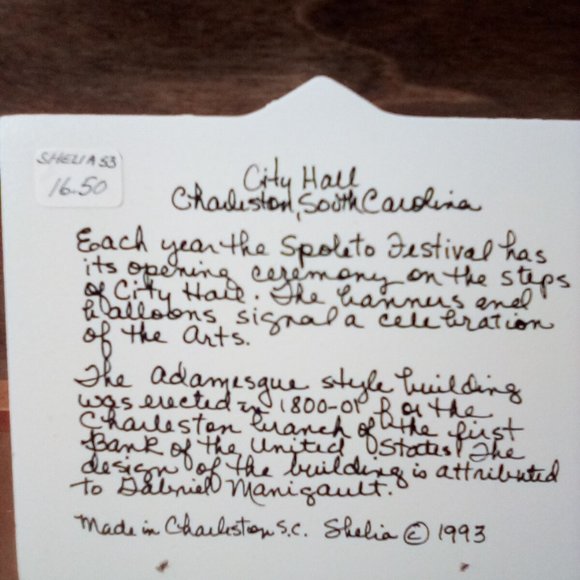 SHELIA 53
16.50
City Hall
Charleston, South Carolina
Each year the Spoleto Festival has
its opening ceremony on the steps
of City Hall. The banners and
balloons signal a celebration
of the Arts.
The Adamesque style building
was erected in 1800-01 for the
Charleston branch of the first
Bank of the United States. The
design of the building is attributed
to Gabriel Manigault.
Made in Charleston S.C. Shelia © 1993